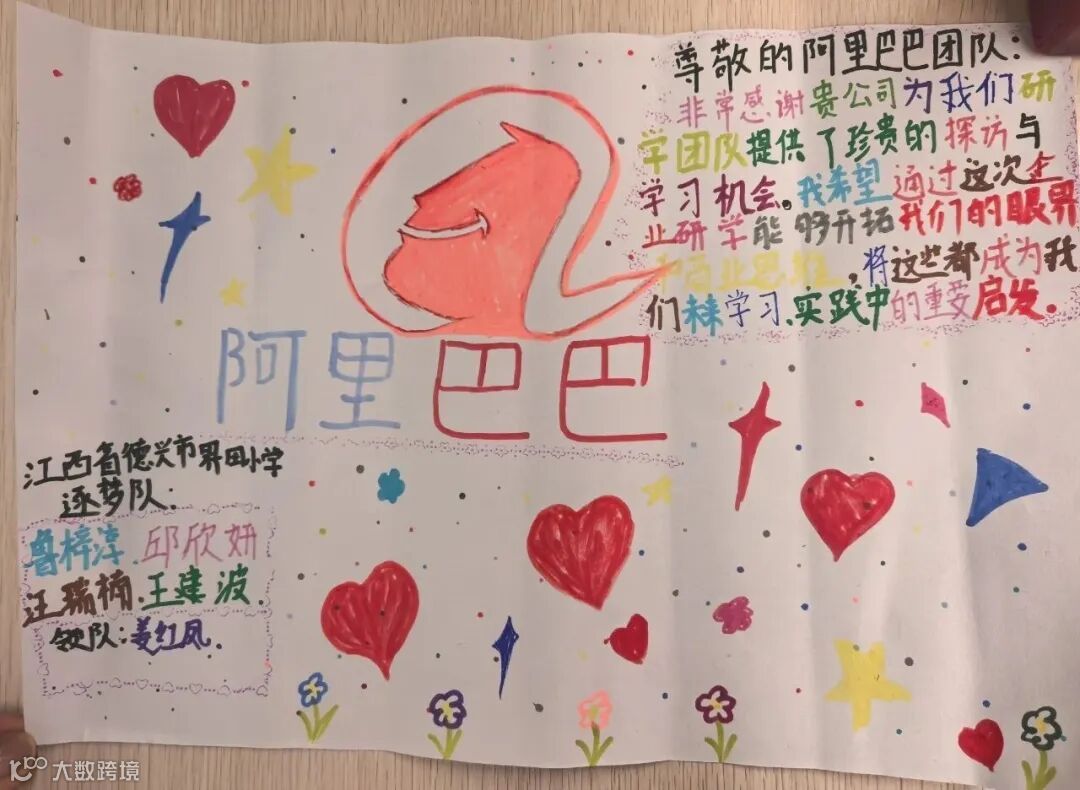 尊敬的阿里巴巴团队:
非常感谢贵公司为我们研
学团队提供了珍贵的探访与
学习机会。我希望通过这次企
业研学能够开拓我们的眼界
和商业思维,将这些都成为我
们未来学习.实践中的重要启发.
阿里巴巴
江西省德兴市界田小学
逐梦队:
鲁梓淳.邱欣妍
汪瑞楠.王建波.
领队:姜红凤.
大数跨境